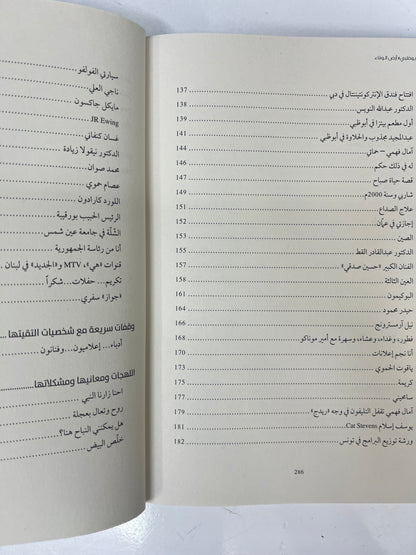 أبوظبي أرض الوفاء
افتتاح فندق الإنتركونتيننتال في دبي 137
الدكتور عبدالله النويس 138
أول مطعم بيتزا في أبوظبي 139
عبدالمجيد مجذوب والحلاوة في أبوظبي 141
آمال فهمي – حماتي 144
له في ذلك حكم 146
قصة حياة صباح 147
شاربي وسنة 2000م 149
علاج الصداع 151
إجازتي في عمّان 152
الصين 153
الدكتور عبدالقادر القط 155
الفنان الكبير «حسين صدقي» 157
العين الثالثة 158
البوكيمون 161
حيدر محمود 163
نيل آرمسترونج 166
فطور، وغداء، وعشاء، وسهرة مع أمير موناكو 168
أنا نجم إعلانات 170
ياقوت الحموي 171
كريمة 175
سامحيني 177
آمال فهمي تقفل التليفون في وجه «ريدج» 179
يوسف إسلام Cat Stevens 181
ورشة توزيع البرامج في تونس 182
286
سيارتي الفولفو
ناجي العلي
مايكل جاكسون
JR Ewing
غسان كنفاني
الدكتور نيقولا زيادة
محمد صوان
عصام حموي
اللورد كارادون
الرئيس الحبيب بورقيبة
الشلّة في جامعة عين شمس
أنا من رئاسة الجمهورية
قنوات «هي»، MTV و«الجديد» في لبنان
تكريم... حفلات... شكراً
«جواز» سفري
وقفات سريعة مع شخصيات التقيتها
أدباء... إعلاميون... وفنانون
اللهجات ومعانيها ومشكلاتها
احنا زارنا النبي
روح وتعال بعجلة
هل يمكنني النباح هنا؟
خلّص البيض